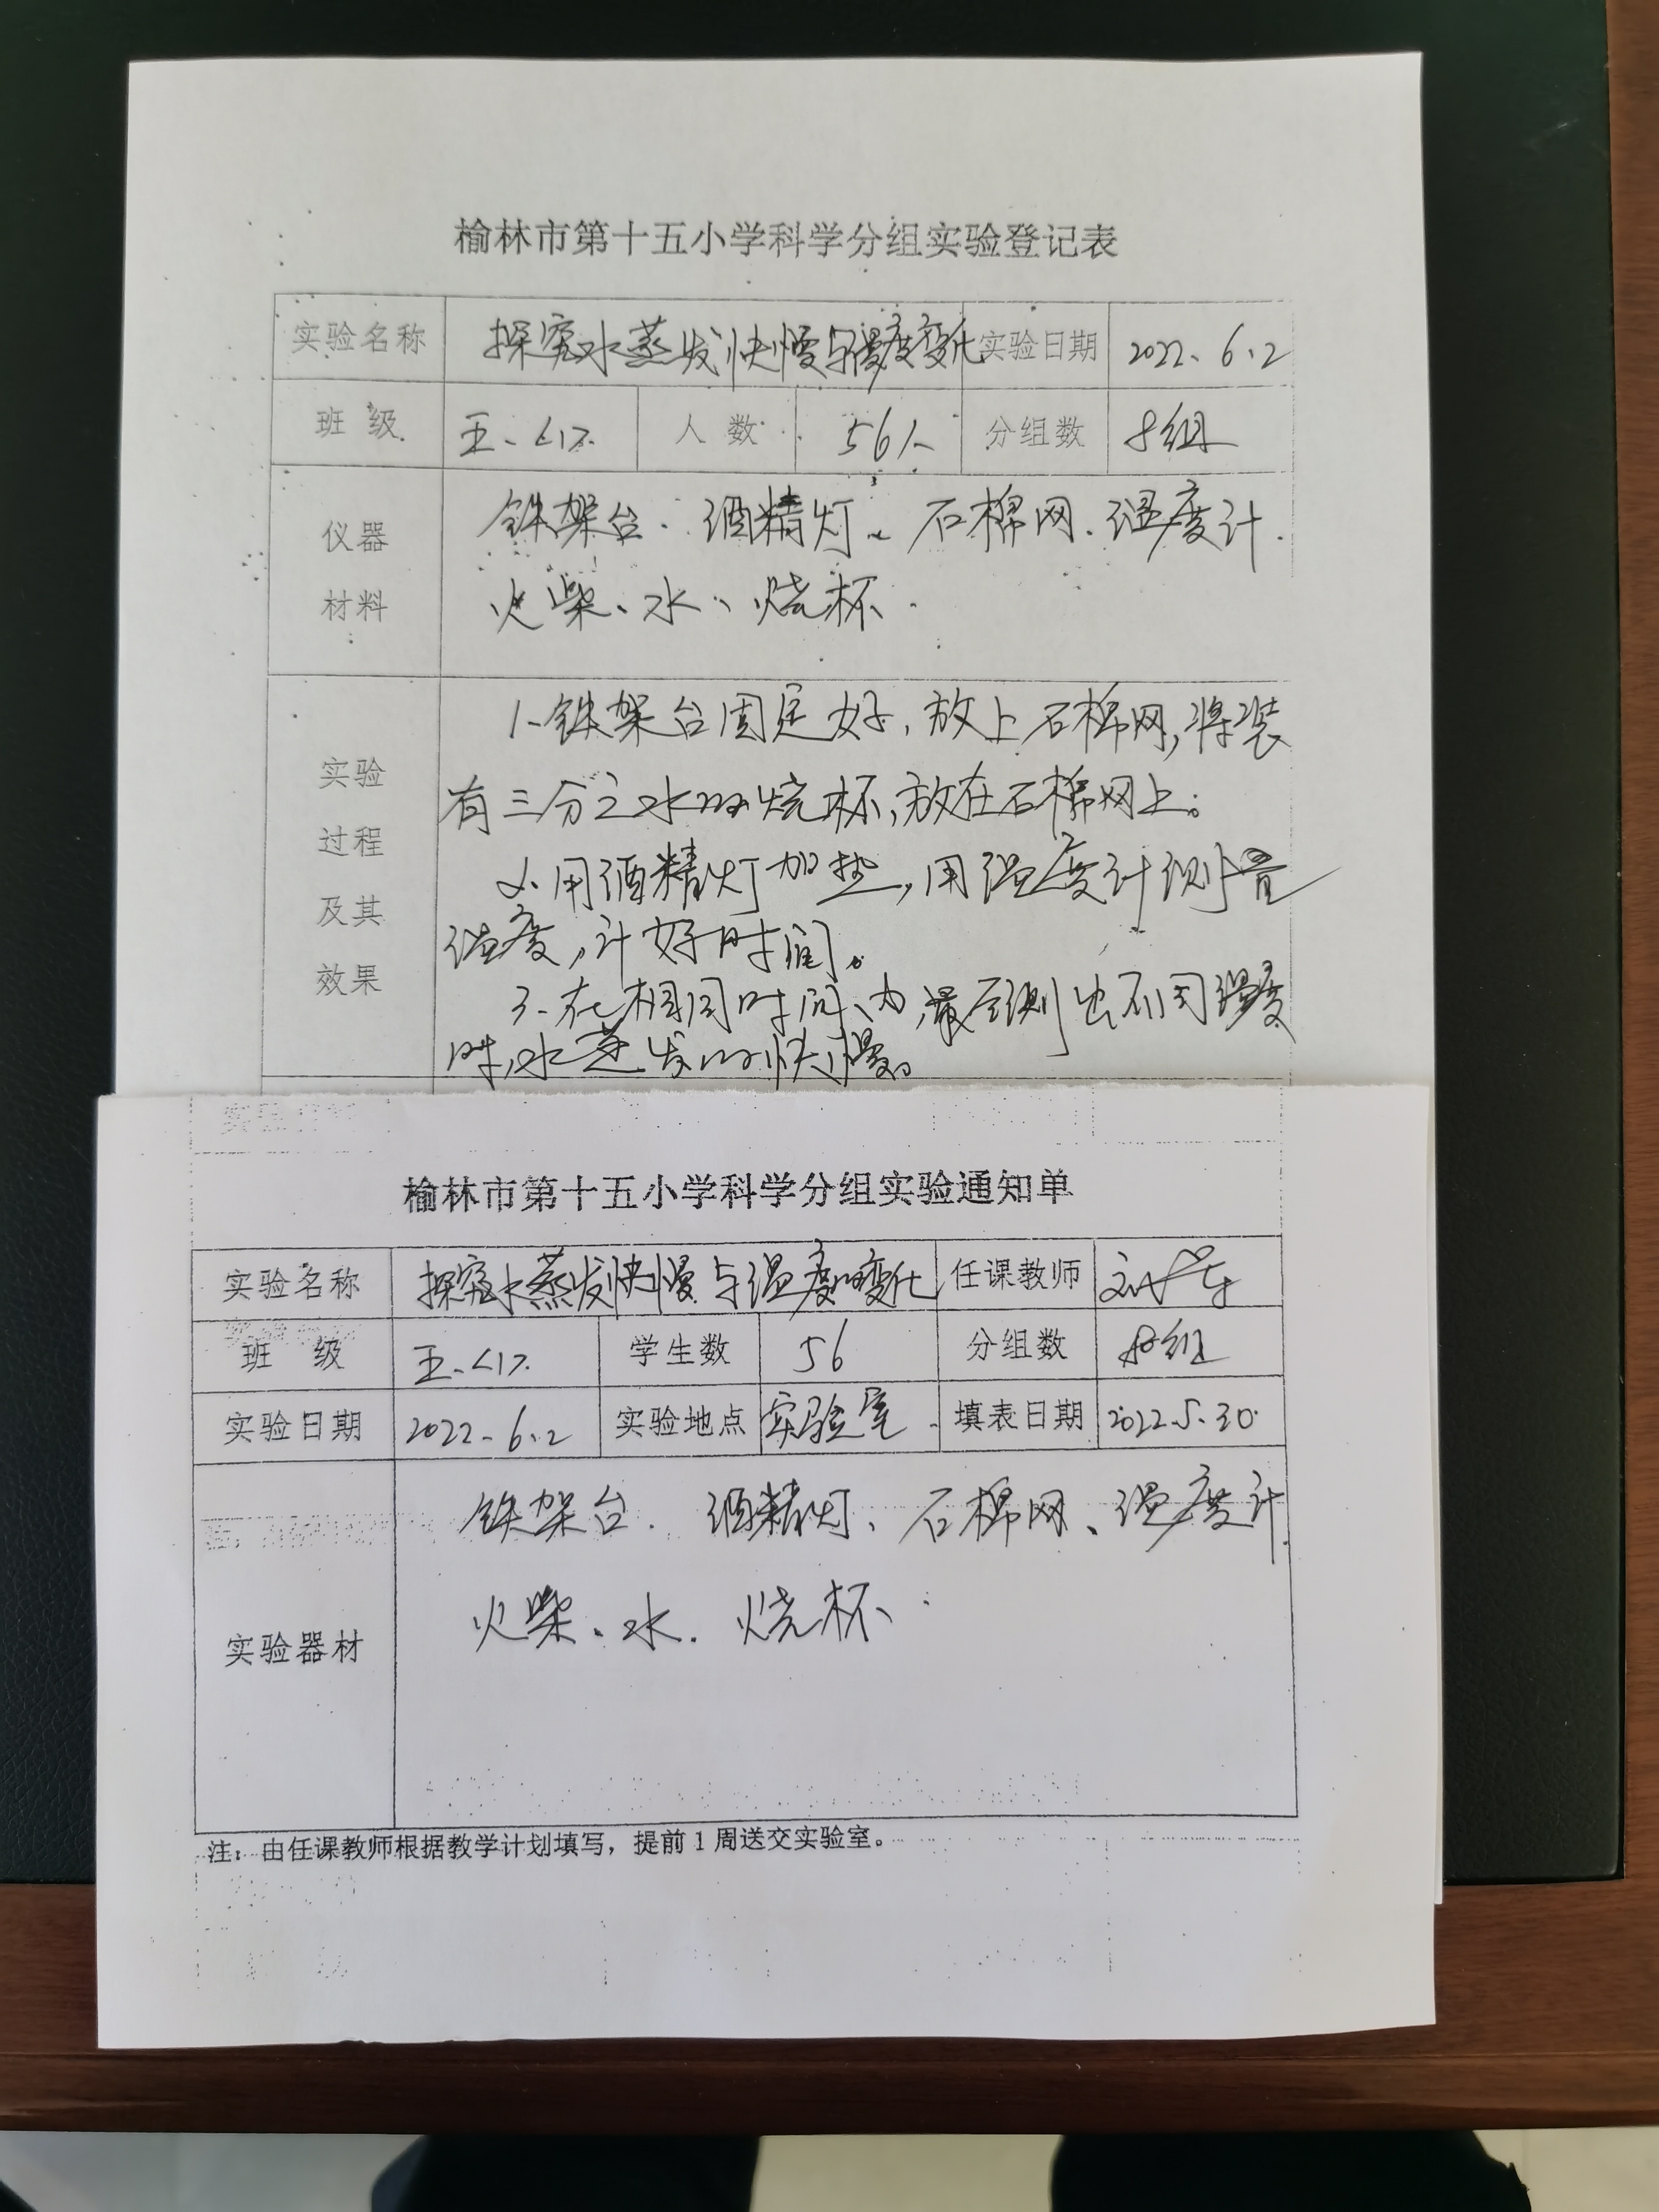 榆林市第十五小学科学分组实验登记表
实验名称 探究水蒸发快慢与温度变化 实验日期 2022.6.2
班 级 五.<1>. 人 数 56人 分组数 8组
仪器 材料
铁架台.酒精灯、石棉网.温度计.
火柴、水、烧杯.
实验 过程 及其 效果
1.铁架台固定好,放上石棉网,将装
有三分之水的烧杯,放在石棉网上。
2.用酒精灯加热,用温度计测量
温度,计好时间。
3.在相同时间内,最后测出不同温度
时,水蒸发的快慢。
榆林市第十五小学科学分组实验通知单
实验名称 探究水蒸发快慢与温度的变化 任课教师 刘
班 级 五.<1>. 学生数 56 分组数 8组
实验日期 2022.6.2 实验地点 实验室. 填表日期 2022.5.30.
实验器材
铁架台.酒精灯、石棉网、温度计.
火柴、水.烧杯.
注:由任课教师根据教学计划填写,提前1周送交实验室。